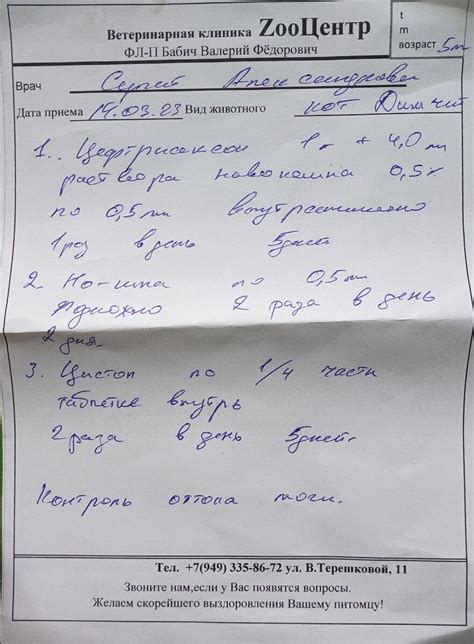 Ветеринарная клиника ZooЦентр
ФЛ-П Бабич Валерий Фёдорович
t
m
возраст 5м
Врач Сергей Александрович
Дата приема 14.03.23 Вид животного кот Дымчит
1. Цефтриаксон 1г + 4,0 мл
раствора новокаина 0,5%
по 0,5мл внутримышечно
1 раз в день 5 дней
2. Но-шпа по 0,5мл
2 раза в день
2 дня
3. Цистон по 1/4 части
таблетке внутрь
2 раза в день 5 дней.
Контроль оттока мочи.
Тел. +7(949) 335-86-72 ул. В.Терешковой, 11
Звоните нам,если у Вас появятся вопросы.
Желаем скорейшего выздоровления Вашему питомцу!